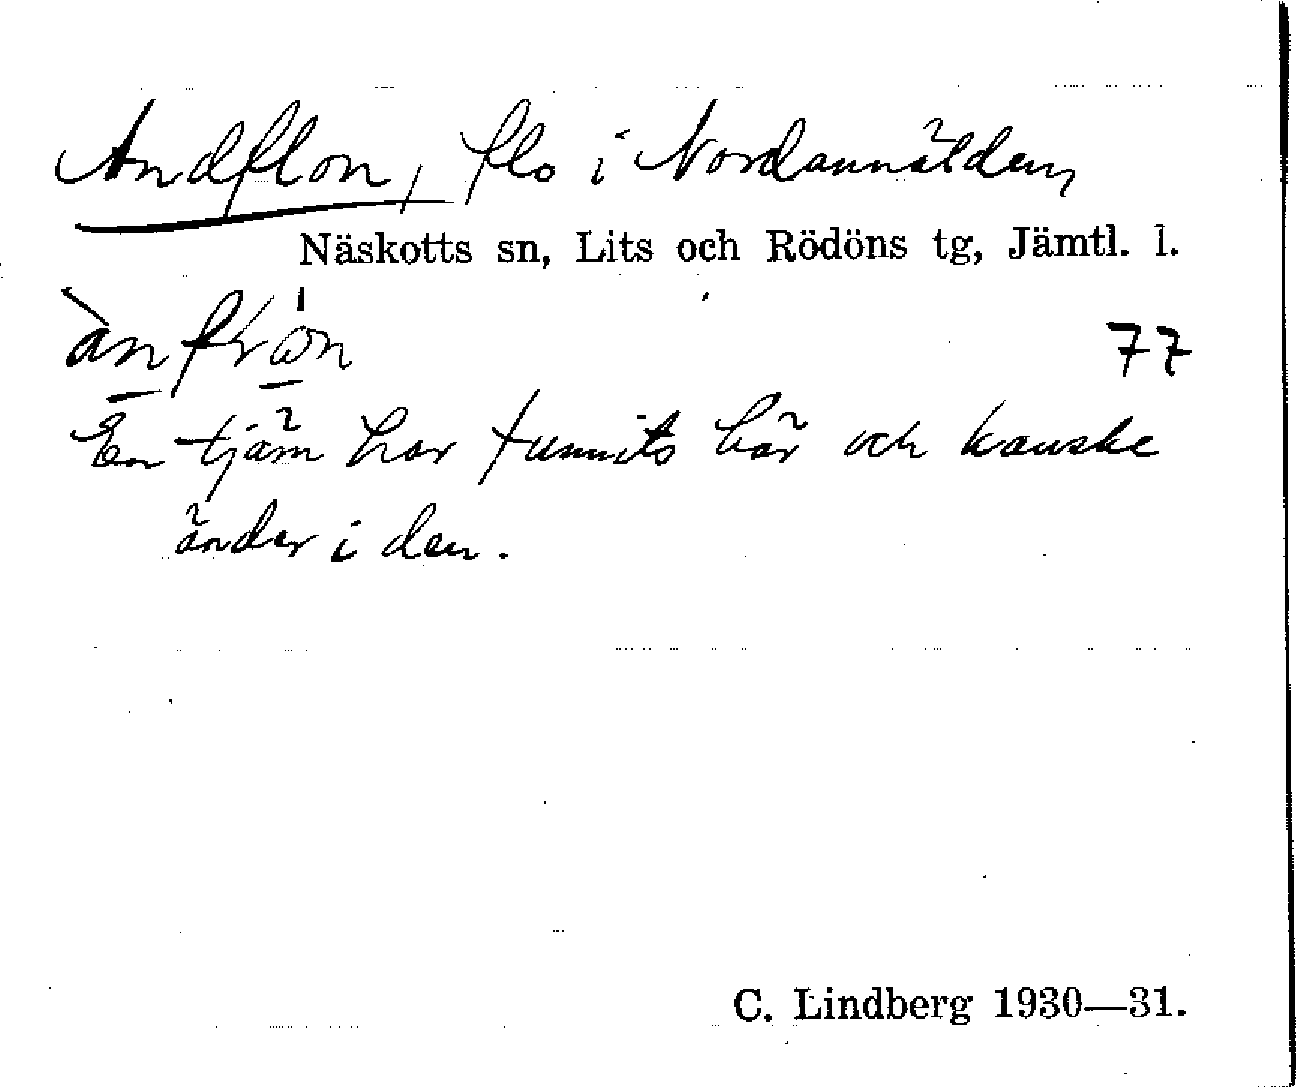 Andflon, flo i Nordannälden,
Näskotts sn, Lits och Rödöns tg, Jämtl. l.
77
En tjäm har funnits här och kanske
änder i den.
C. Lindberg 1930—31.